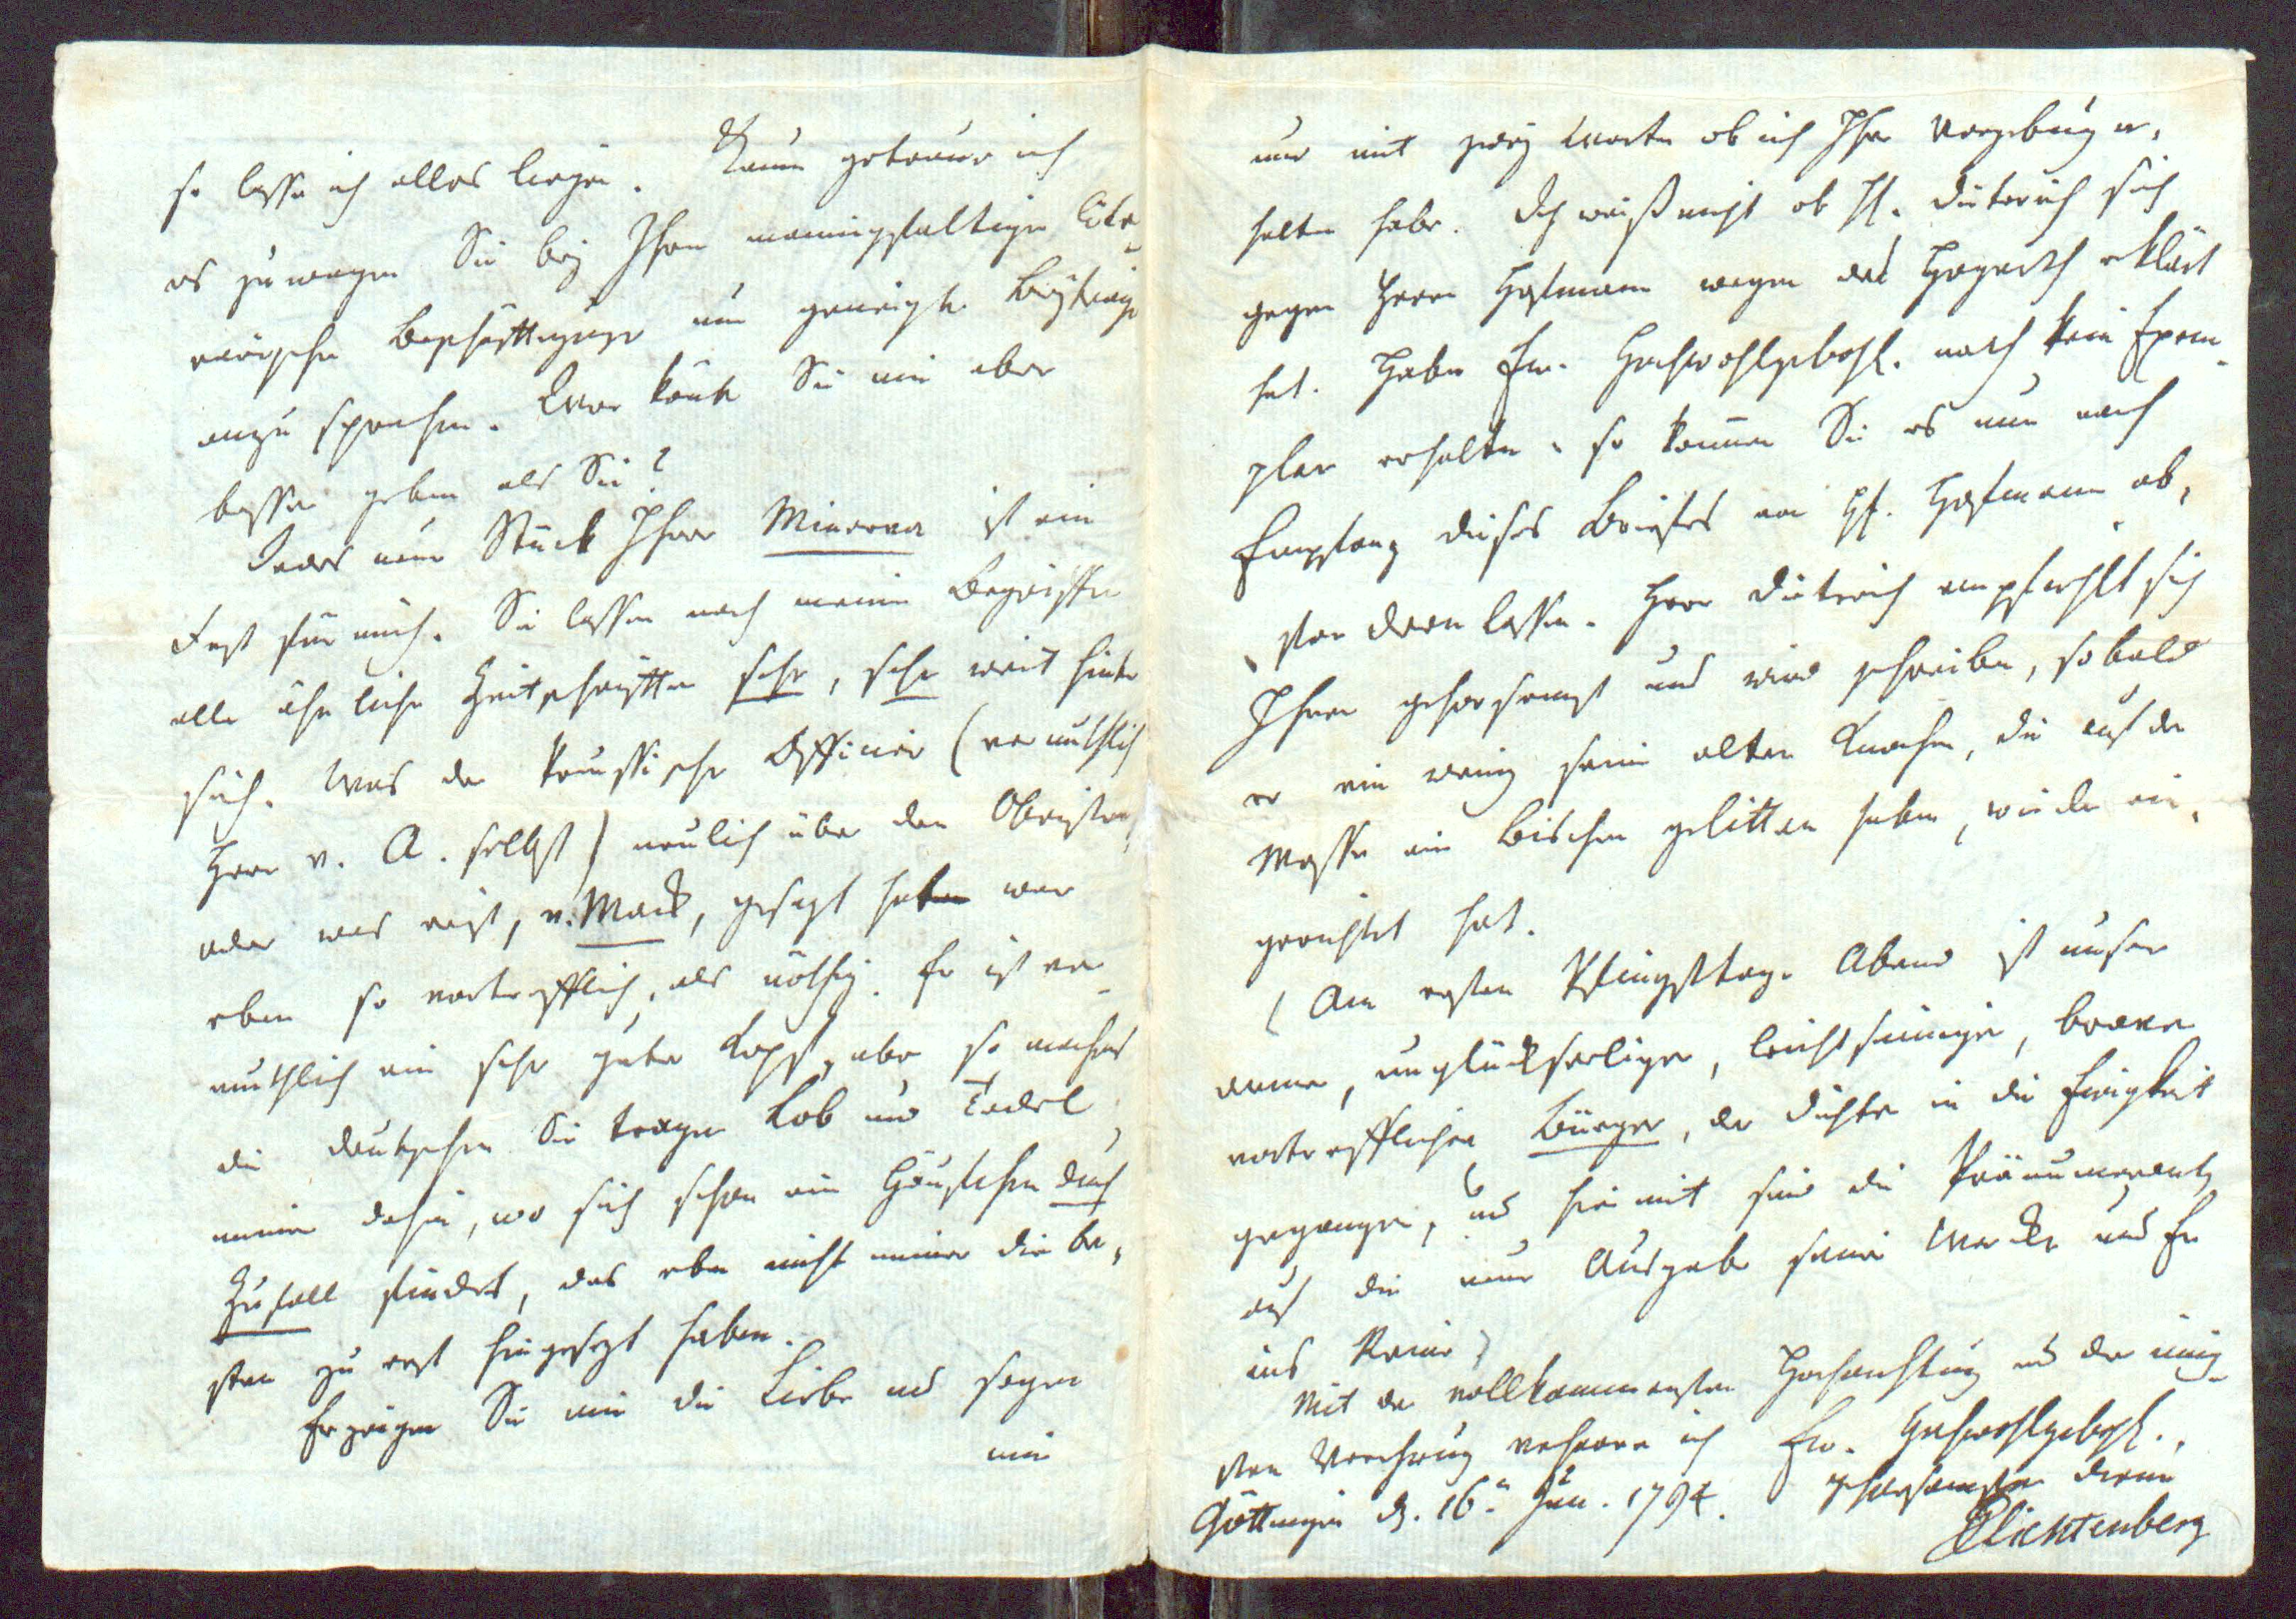 so lasse ich alles liegen. Kaum getraue ich
es zu wagen Sie bey Ihren mannigfaltigen litte-
rärischen Beschäfftigungen um geneigte Beyträge
anzusprechen. Wer könte Sie mir aber
besser geben als Sie?
Jedes neue Stück Ihrer Minerva ist ein
Fest für mich. Sie lassen nach meinen Begriffen
alle ähnliche Zeitschrifften sehr, sehr weit hinter
sich. Was der Preussische Officier (vermuthlich
Herr v. A. selbst) neulich über den Obristen,
oder was er ist, v. Mack, gesagt hat war
eben so vortrefflich, als nöthig. Er ist ver-
muthlich ein sehr guter Kopf, aber so machens
die Deutschen Sie tragen Lob und Tadel
immer dahin, wo sich schon ein Häufchen durch
Zufall findet, das eben nicht immer die be-
sten zu erst hingesezt haben.
Erzeigen Sie mir die Liebe und sagen
mir
nur mit zwey Worten ob ich Ihre Vergebung er-
halten habe. Ich weiß nicht ob HE. Dieterich sich
gegen Herrn Hofmann wegen des Hogarth erklärt
hat. Haben Ew. Hochwohlgebohr. noch kein Exem-
plar erhalten, so können Sie es nur nach
Empfang dieses Briefes von HE. Hofmann ab-
fordern lassen. Herr Dieterich empfiehlt sich
Ihnen gehorsamst und wird schreiben, so bald
er ein wenig seine alten Knochen, die auf der
Messe ein Bischen gelitten haben, wieder ein-
gerichtet hat.
(Am ersten Pfingsttage Abend ist unser
armer, unglückseeliger, leichtsinniger, braver
vortrefflicher Bürger, der Dichter in die Ewigkeit
gegangen, und hiemit sind die Pränumeranten
auf die neue Ausgabe seiner Wercke und Er
ins Reine)
Mit der vollkommensten Hochachtung und der innig-
sten Verehrung verharre ich Ew. Hochwohlgebohr.,
Göttingen d. 16.n Jun. 1794. gehorsamster Diener
GCLichtenberg